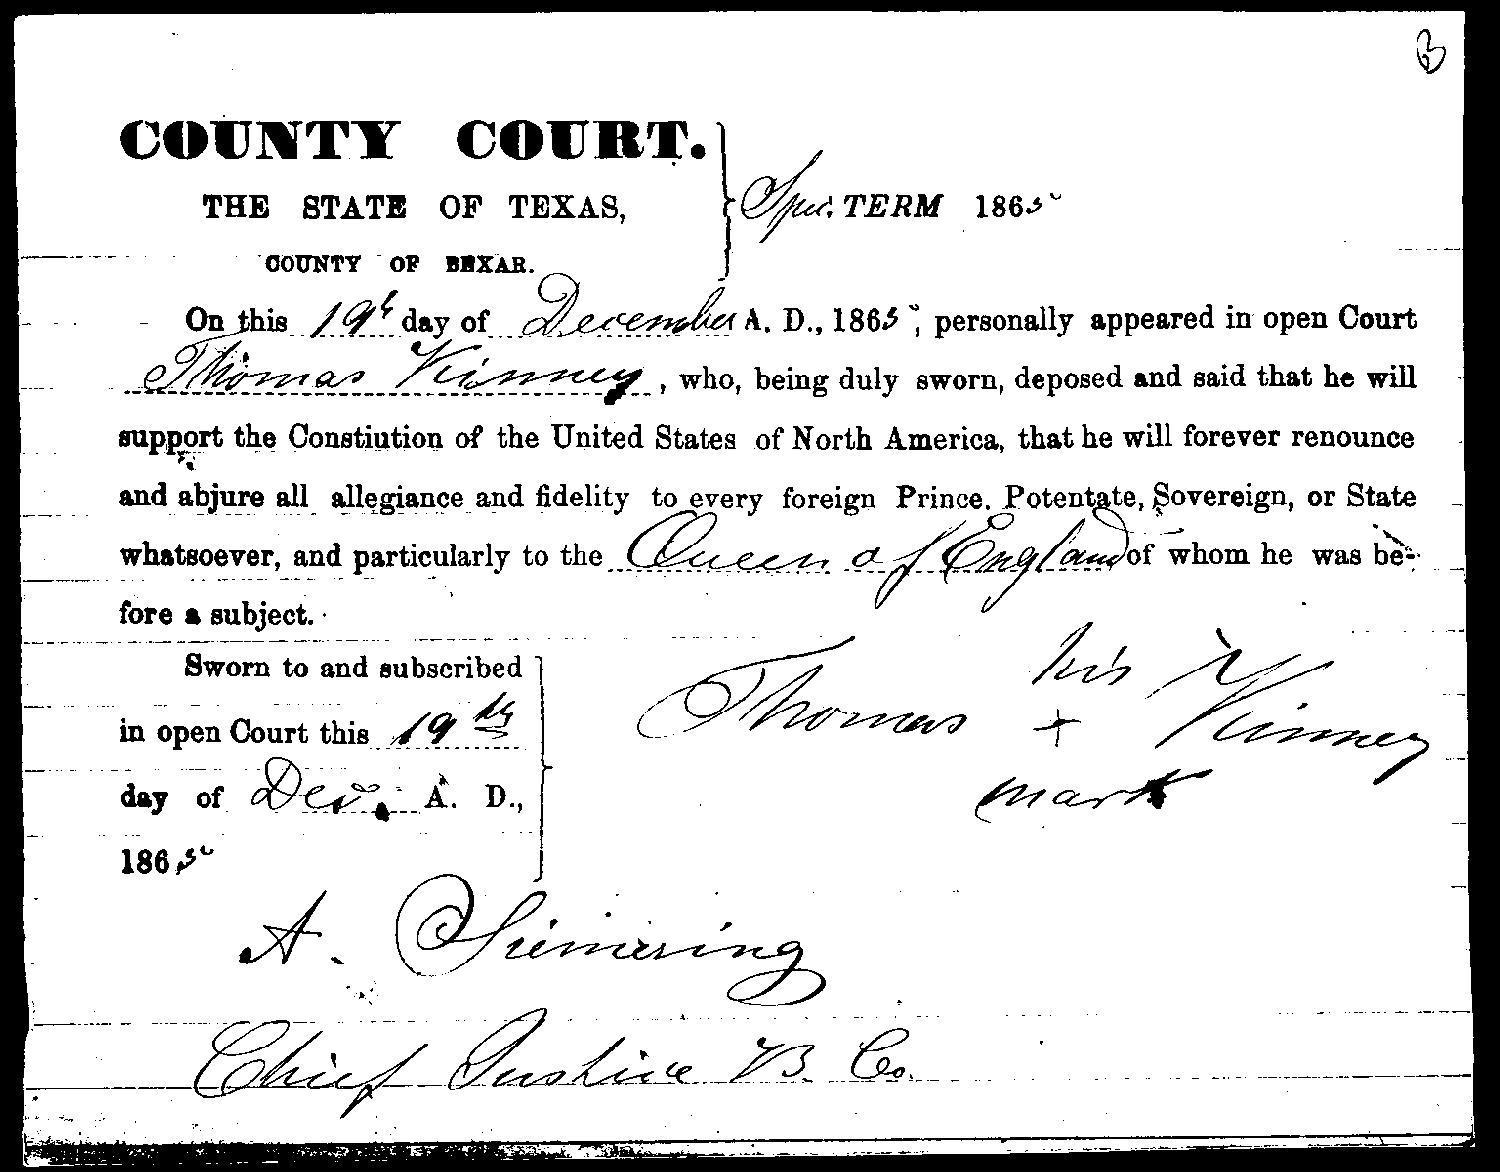 B
COUNTY COURT.
THE STATE OF TEXAS,
COUNTY OF BEXAR.
Spec. TERM 1865
On this 19th day of December A. D., 1865, personally appeared in open Court
Thomas Kinney, who, being duly sworn, deposed and said that he will
support the Constiution of the United States of North America, that he will forever renounce
and abjure all allegiance and fidelity to every foreign Prince. Potentate, Sovereign, or State
whatsoever, and particularly to the Queen of England of whom he was be-
fore a subject.
Sworn to and subscribed
in open Court this 19th
day of Dec. A. D.,
1865
his
Thomas + Kinney
mark
A. Siemering
Chief Justice B. Co.